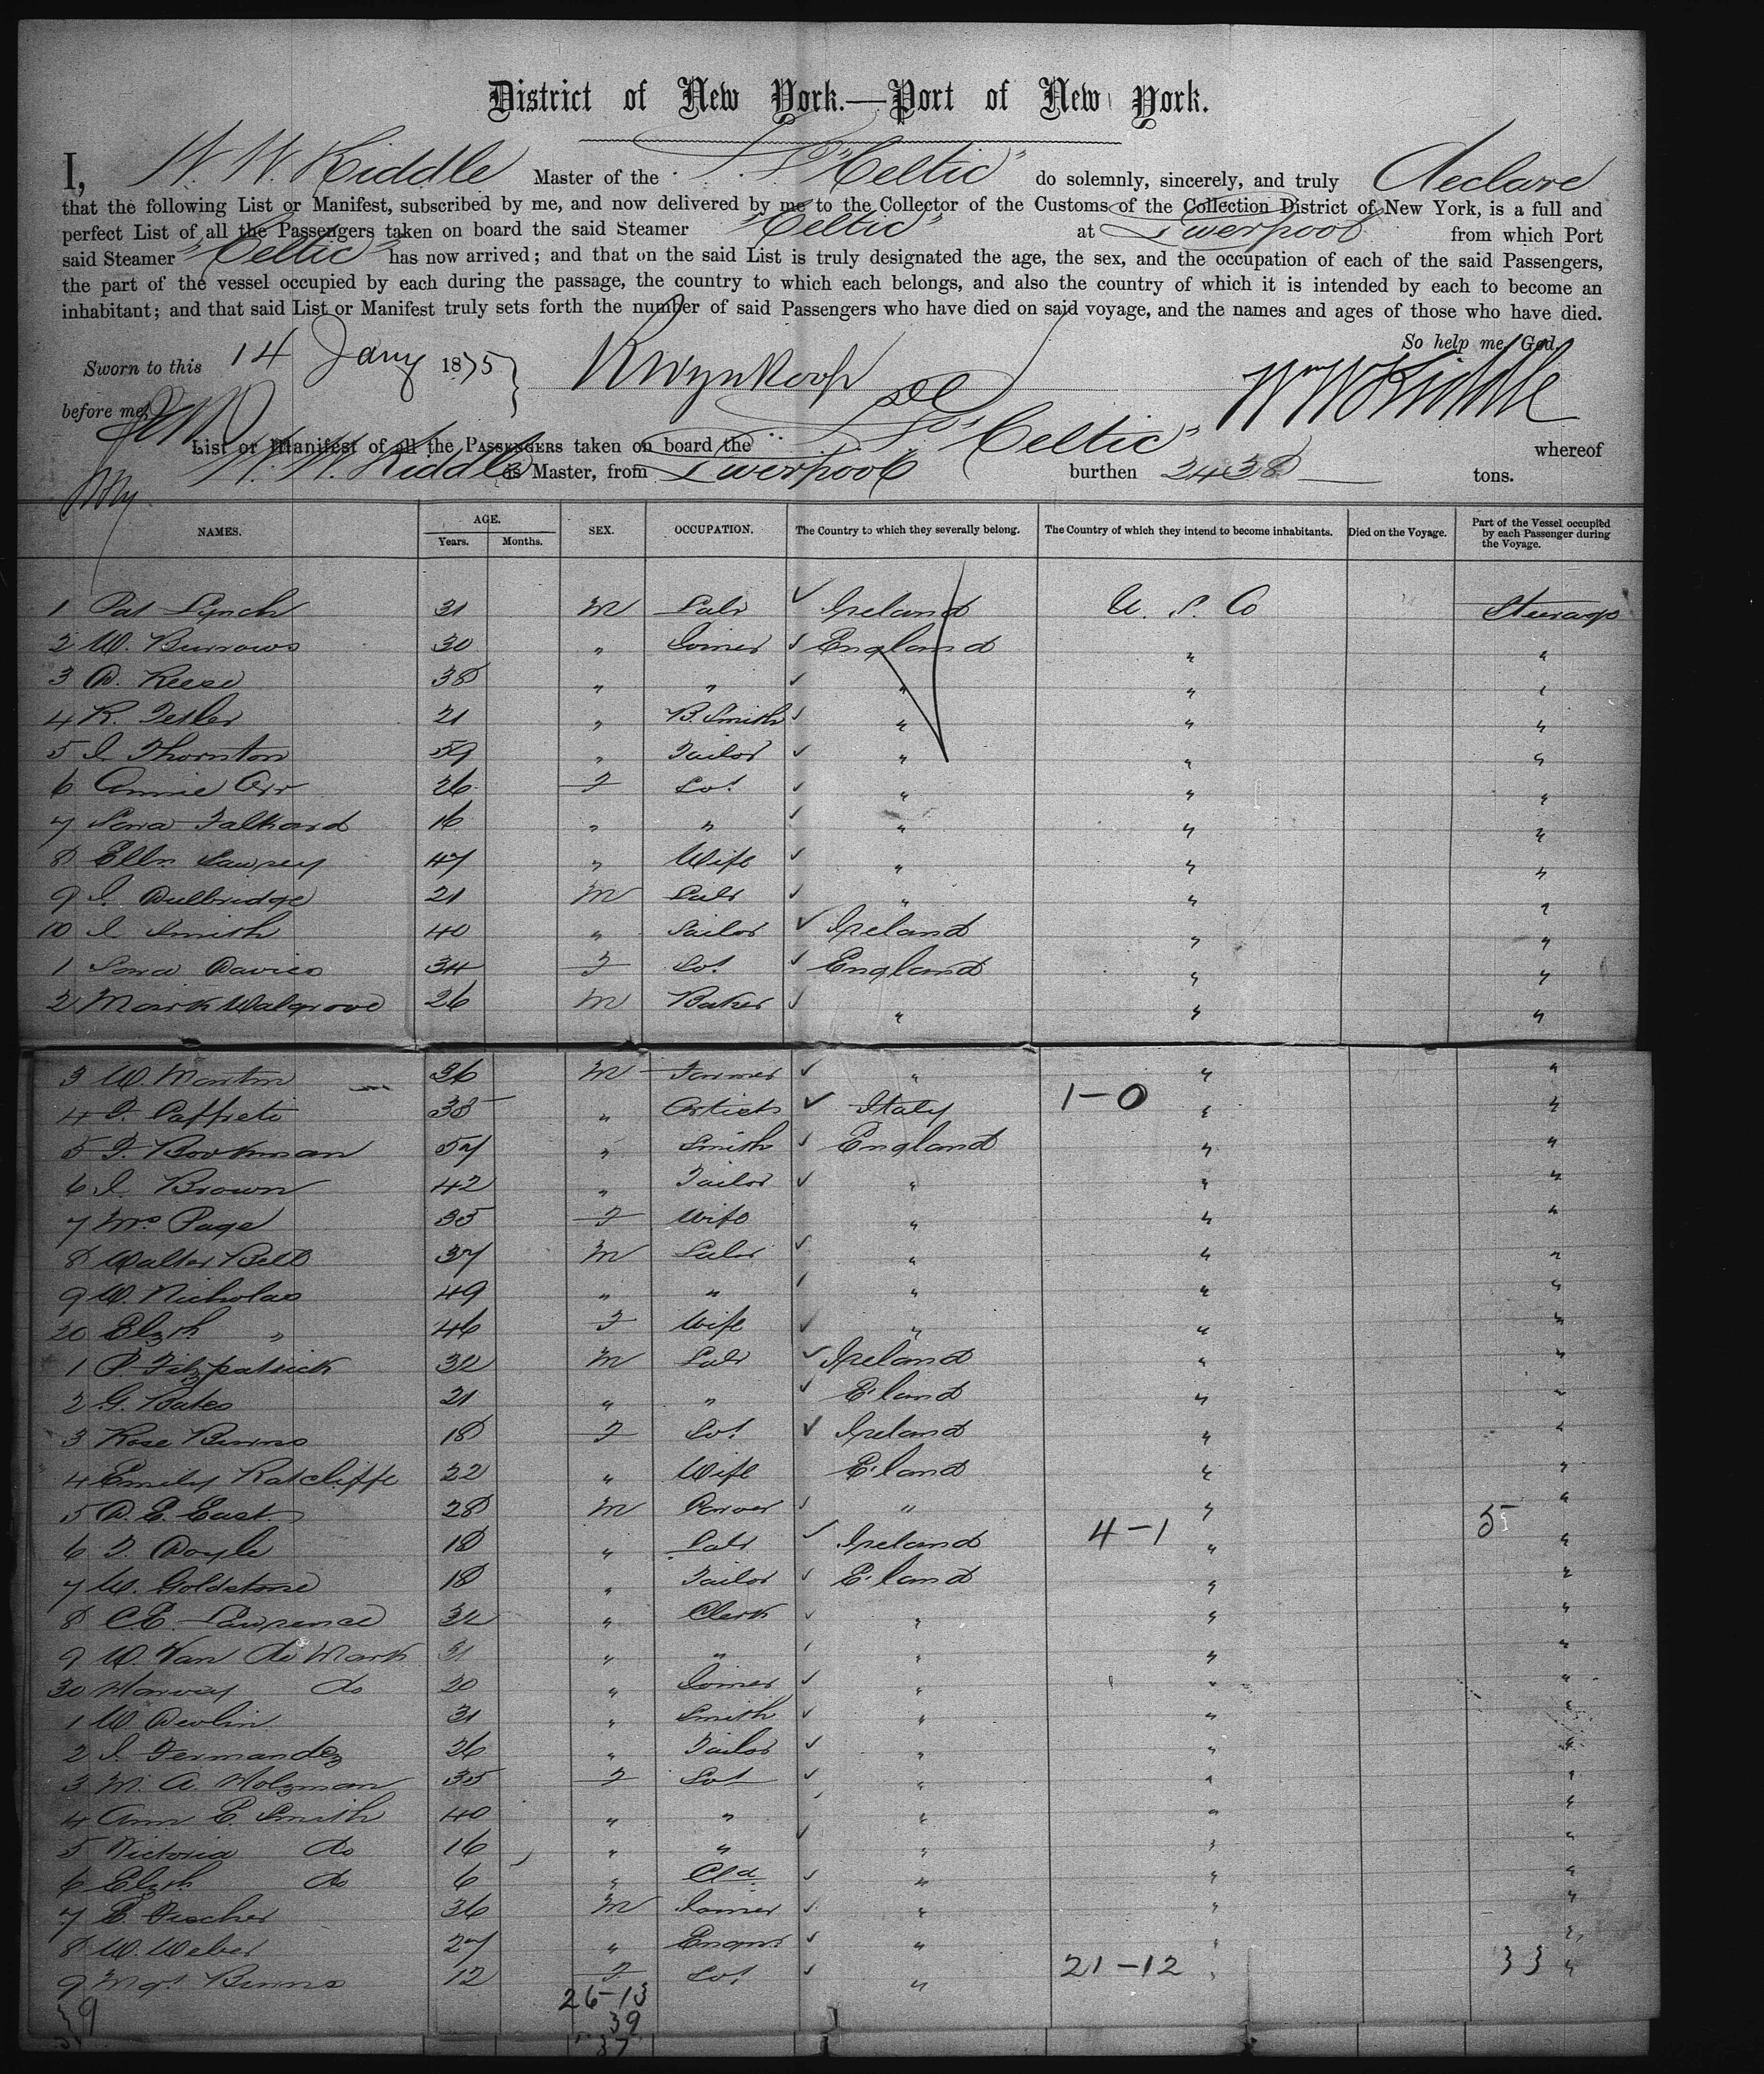 District of New York.—Port of New York.
I, W. W. Kiddle Master of the S.S. "Celtic" do solemnly, sincerely, and truly declare
that the following List or Manifest, subscribed by me, and now delivered by me to the Collector of the Customs of the Collection District of New York, is a full and
perfect List of all the Passengers taken on board the said Steamer "Celtic" at Liverpool from which Port
said Steamer "Celtic" has now arrived; and that on the said List is truly designated the age, the sex, and the occupation of each of the said Passengers,
the part of the vessel occupied by each during the passage, the country to which each belongs, and also the country of which it is intended by each to become an
inhabitant; and that said List or Manifest truly sets forth the number of said Passengers who have died on said voyage, and the names and ages of those who have died.
So help me God.
Sworn to this 14 Jany 1875 Wm W Kiddle
before me,
List or Manifest of all the PASSENGERS taken on board the S.S. "Celtic" whereof
W. W. Kiddle is Master, from Liverpool burthen 2438 tons.
NAMES. AGE. Years. Months. SEX. OCCUPATION. The Country to which they severally belong. The Country of which they intend to become inhabitants. Died on the Voyage. Part of the Vessel occupied by each Passenger during the Voyage.
1 Pat Lynch 31 M Labr Ireland U. S. Steerage
2 W. Burrows 30 " Joiner England " "
3 D. Reese 38 " " " " "
4 R. 21 " B. Smith " " "
5 J. Thornton 59 " Tailor " " "
6 Annie Orr 26 F " " "
7 Sara 16 " " " " "
8 Ellen 47 " Wife " " "
9 J. Dulbridge 21 M Labr " " "
10 J. Smith 40 " Sailor Ireland " "
1 Sara Davies 34 F England " "
2 Mark Walgrove 26 M Baker " " "
3 W. Martin 36 M Farmer " " "
4 38 " Artist Italy 1-0 " "
5 Bookman 57 " Smith England " "
6 J. Brown 42 " Tailor " " "
7 Mrs Page 35 F Wife " " "
8 Walter Bell 37 M Labr " " "
9 W. Nicholas 49 " " " " "
20 Elzth " 46 F Wife " " "
1 P. Fitzpatrick 32 M Labr Ireland " "
2 G. Bates 21 " " E'land " "
3 Rose Burns 18 F Ireland " "
4 Emily Ratcliffe 22 " Wife E'land " "
5 D. E. East 28 M " " "
6 Doyle 18 " Labr Ireland 4-1 " 5 "
7 W. Goldstone 18 " Tailor E'land " "
8 C.E. Lawrence 32 " Clerk " " "
9 W. Van de Mark 31 " " " " "
30 Harvey do 20 " Joiner " " "
1 W. Devlin 31 " Smith " " "
2 J. Fernandez 26 " Tailor " " "
3 M. A. Holzman 35 F " " "
4 Ann E. Smith 40 " " " " "
5 Victoria do 16 " " " " "
6 Elzth do 6 " Cld " " "
7 E. Fischer 36 M Joiner " " "
8 W. Weber 27 " Engnr " " "
9 Mgt Burns 12 F " 21-12 " 33 "
26-13
39 39
37